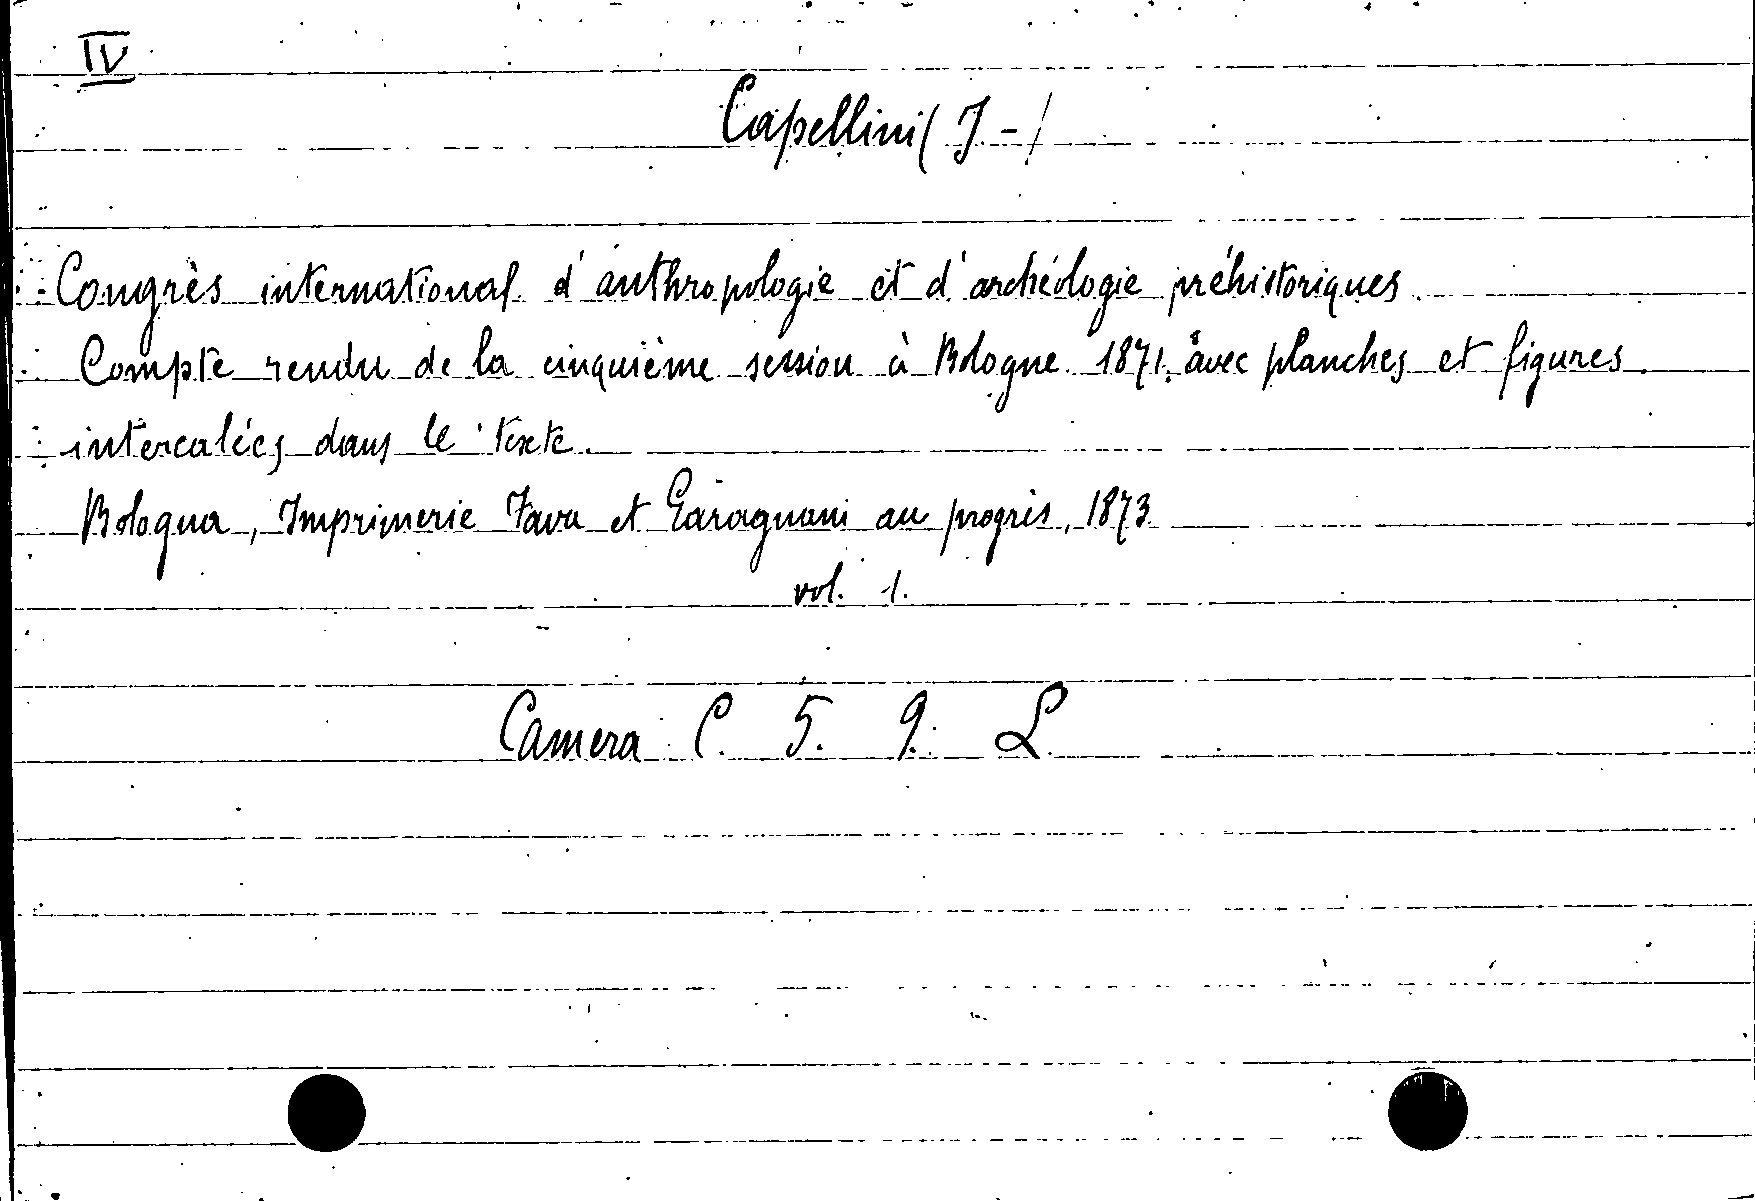 IV
Capellini ( J - )
Congrès international d'anthropologie et d'archéologie préhistoriques.
Compte rendu de la cinquième session à Bologne 1871, avec planches et figures
intercalées dans le texte.
Bologna, Imprimerie Fava et Garagnani au progrès, 1873
vol. 1.
Camera C. 5. 9. L